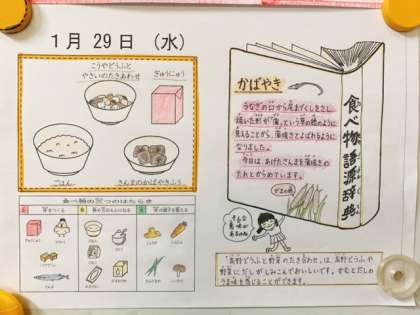 1月29日(水)
こうやどうふと
やさいのたきあわせ
ぎゅうにゅう
ごはん
さんまのかばやきふう
食べ物の三つのはたらき
かばやき
うなぎの口から尾までくしをさし
焼いた形が「蒲」という草の穂のように
見えることから、蒲焼きとよばれるように
なりました。
今日は、あげたさんまを蒲焼きの
たれとからめています。
がまの穂
食べ物語源辞典
そんな
意味が
あるのね
「高野どうふと野菜のたき合わせ」は、高野どうふや
野菜にだしがしみこんでおいしいです。かむとだしの
うま味を感じることができます。